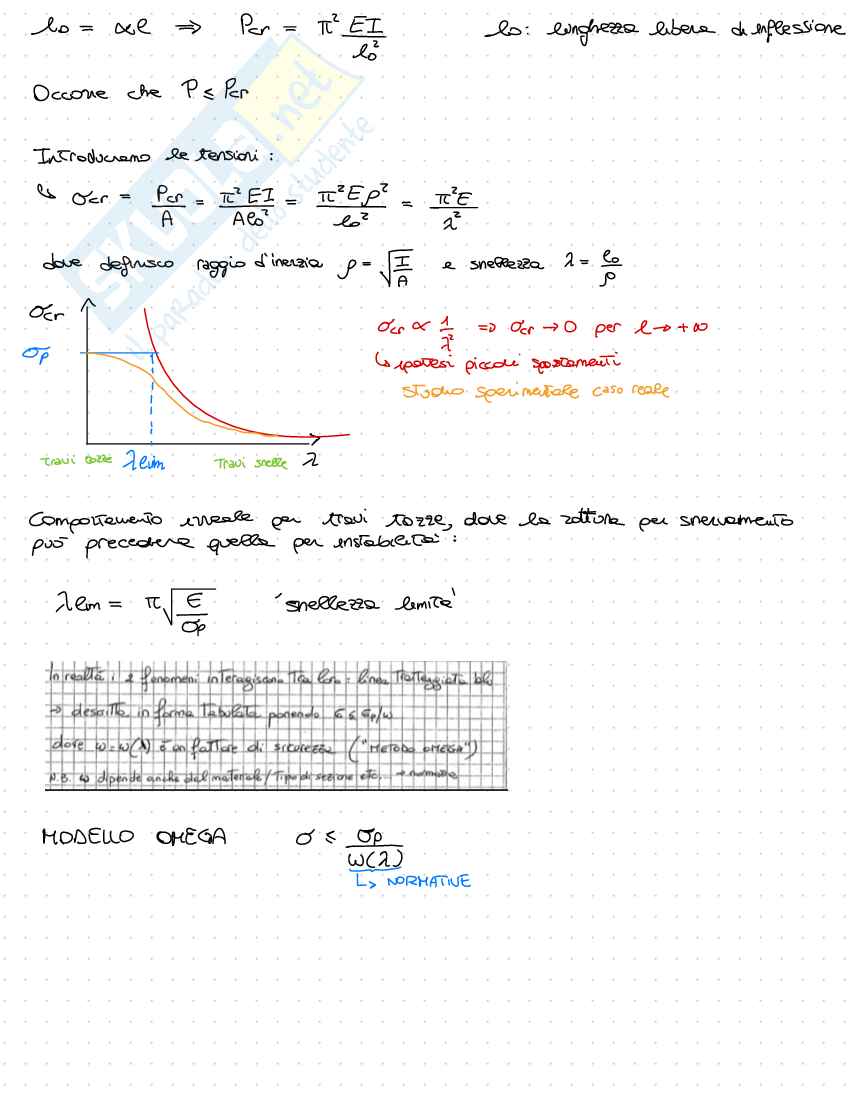 l₀ = αl ⇒ Pcr = π² EI / l₀² l₀: lunghezza libera di inflessione
Occorre che P ≤ Pcr
Introduciamo le tensioni:
↳ σcr = Pcr / A = π² EI / A l₀² = π² E ρ² / l₀² = π² E / λ²
dove definisco raggio d'inerzia ρ = √(I/A) e snellezza λ = l₀ / ρ
σcr
σcr ∝ 1/λ² ⇒ σcr → 0 per l → +∞
σp
↳ ipotesi piccoli spostamenti
studio sperimentale caso reale
travi tozze λlim travi snelle λ
Comportamento irreale per travi tozze, dove la rottura per snervamento
può precedere quella per instabilità:
λlim = π √(E/σp) 'snellezza limite'
In realtà i 2 fenomeni interagiscono tra loro = linea tratteggiata blu
→ descritta in forma tabulata ponendo σ ≤ σp/ω
dove ω=ω(λ) è un fattore di sicurezza ("METODO OMEGA")
N.B. ω dipende anche dal materiale/Tipo di sezione etc. → normative
MODELLO OMEGA σ ≤ σp / ω(λ)
↳ NORMATIVE
SKUOLA.net
il paradiso dello studente